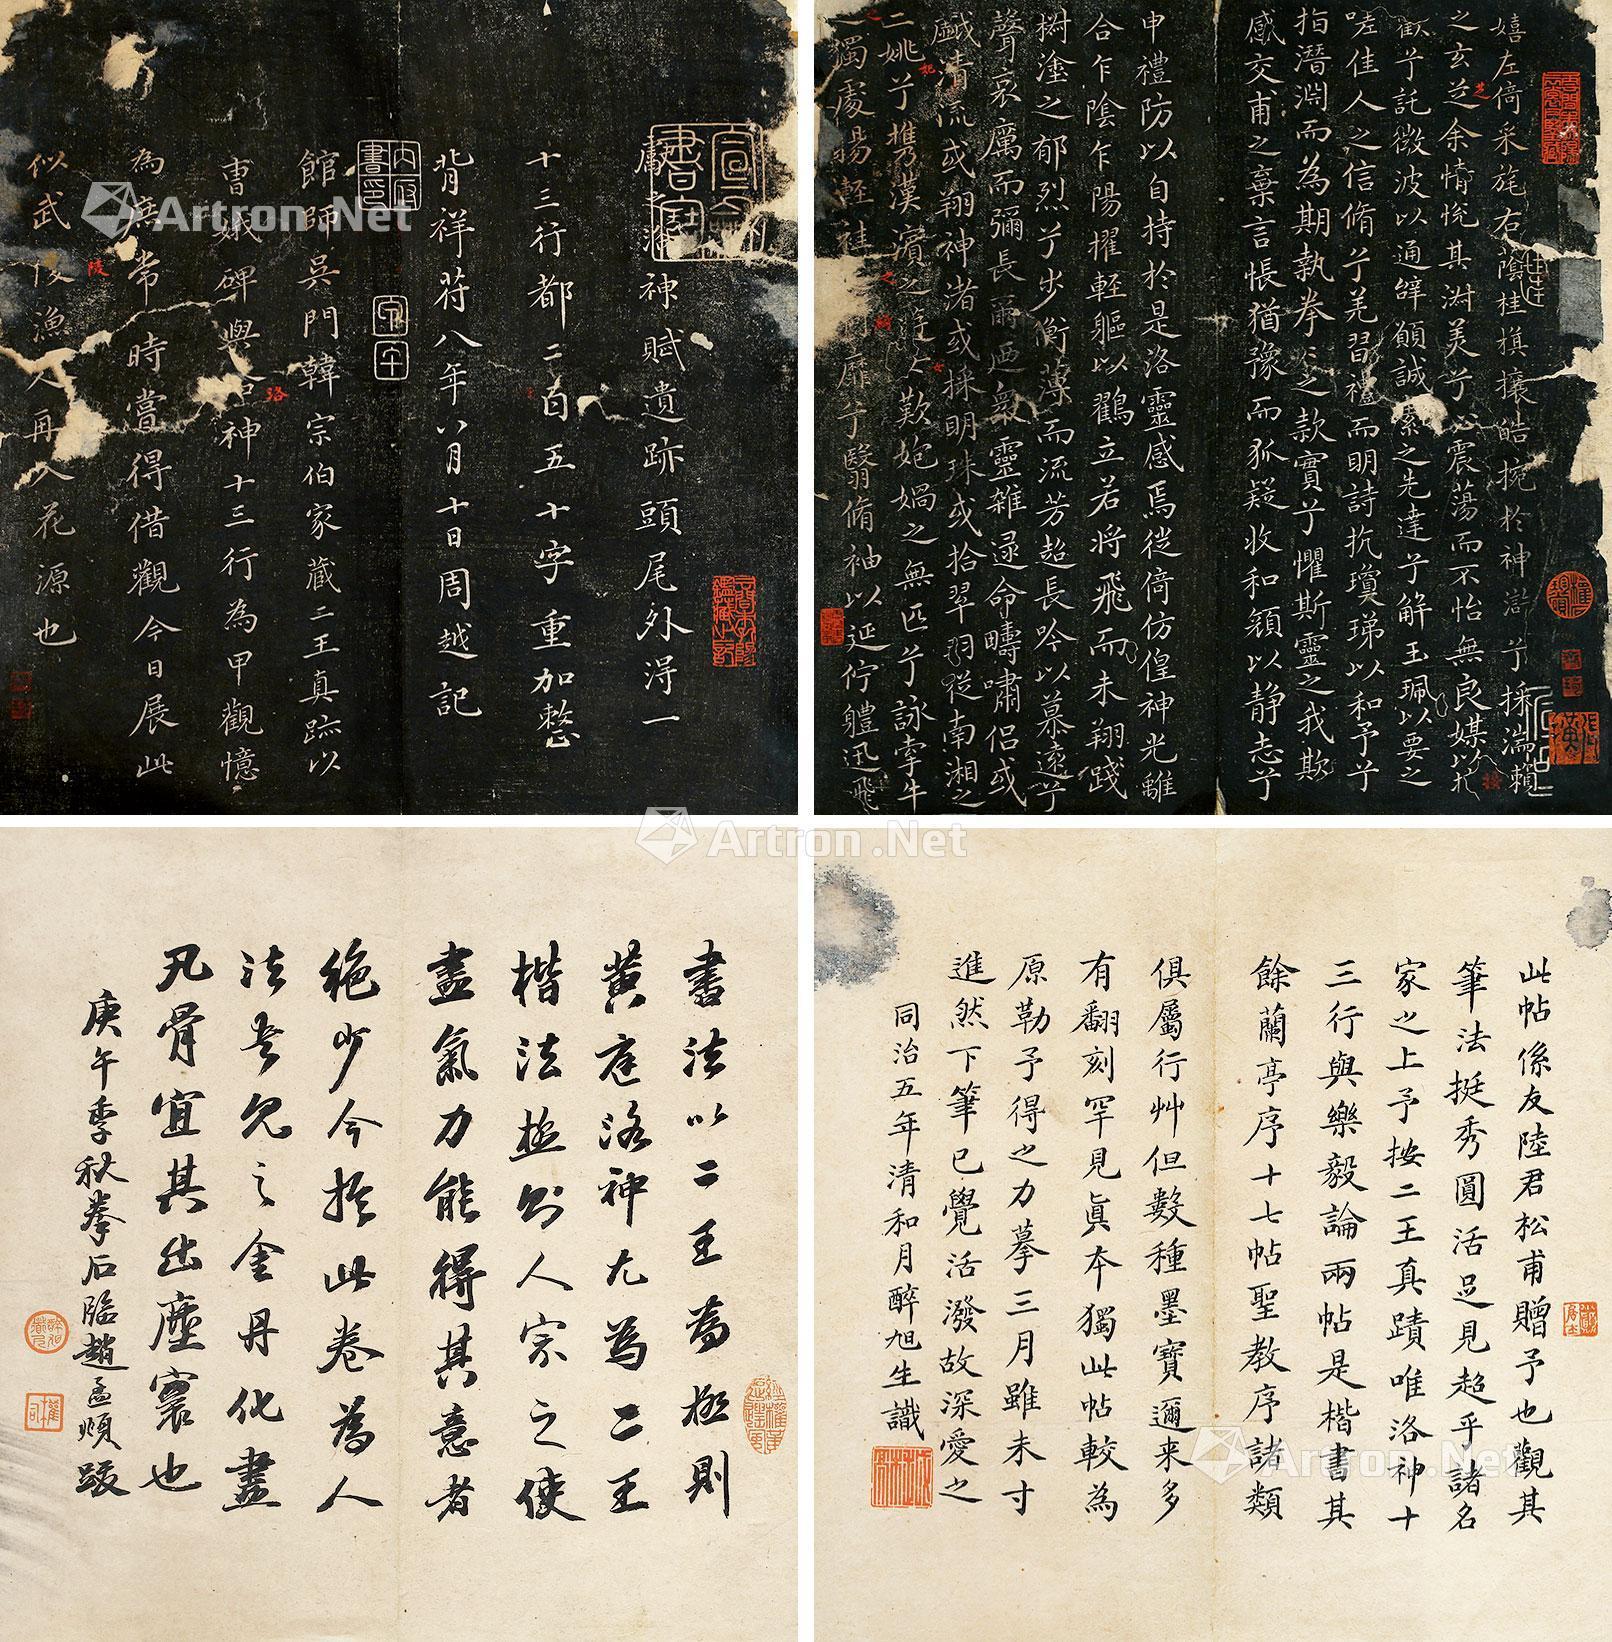 嬉左倚采旄右蔭桂旗攘皓捥於神滸兮採湍瀨
之玄芝余情悅其淑美兮心震蕩而不怡無良媒以
歡兮託微波以通辭願誠素之先達兮解玉珮以要之
嗟佳人之信脩兮羌習禮而明詩抗瓊珶以和予兮
指潛淵而為期執拳〻之款實兮懼斯靈之我欺
感交甫之棄言悵猶豫而狐疑收和顏以静志兮
申禮防以自持於是洛靈感焉徙倚仿偟神光離
合乍陰乍陽擢輕軀以鶴立若將飛而未翔踐
椒塗之郁烈兮步衡薄而流芳超長吟以慕遠兮
聲哀厲而彌長爾迺衆靈雜遝命疇嘯侣或
戲清流或翔神渚或採明珠或拾翠羽從南湘之
二姚兮携漢濱之
歎匏媧之無匹兮詠牽牛
之獨處揚輕袿
靡兮翳脩袖以延佇軆迅飛
神賦遺跡頭尾外淂一
十三行都二百五十字重加整
背祥苻八年八月十日周越記
館師吳門韓宗伯家藏二王真跡以
曹娥碑與
神十三行為甲觀憶
為庶常時嘗得借觀今日展此
似武陵漁人再入花源也
此帖係友陸君松甫贈予也觀其
筆法挺秀圓活足見超乎諸名
家之上予按二王真蹟唯洛神十
三行與樂毅論兩帖是楷書其
餘蘭亭序十七帖聖教序諸類
俱屬行艸但數種墨寶邇来多
有翻刻罕見眞本獨此帖較為
原勒予得之力摹三月雖未寸
進然下筆已覺活潑故深愛之
同治五年清和月醉旭生識
書法以二王為極則
黄庭洛神尤為二王
楷法極則人宗之使
盡氣力能得其意者
絶少今於此卷為人
法書見之金丹化盡
凡骨宜其出塵寰也
庚午季秋拳石臨趙孟頫跋
Artron.Net
Artron.Net
Artron.Net
Artron.Net